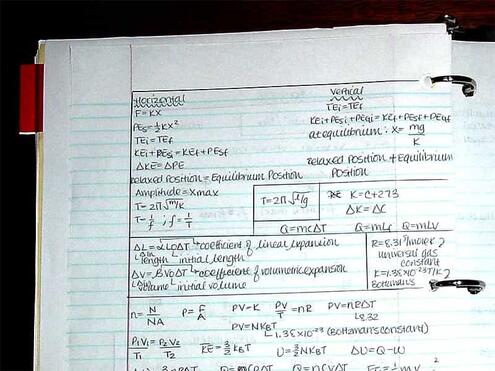 Horizontal
F=KX
PEs=½KX²
TEi=TEf
KEi+PEsi=KEf+PEsf
ΔKE=ΔPE
Relaxed Position=Equilibrium Position
Vertical
TEi=TEf
KEi+PEsi+PEgi=KEf+PEsf+PEgf
at equilibrium: X=mg/K
Relaxed Position ≠ Equilibrium Position
Amplitude=Xmax
T=2π√m/k
T=1/f ; f=1/T
T=2π√L/g
K=C+273
ΔK=ΔC
Q=mcΔT Q=mLf Q=mLv
ΔL=αLoΔT coefficient of linear expansion
Δ in length initial length
ΔV=βVoΔT coefficient of volumetric expansion
Δ in volume initial volume
R=8.31 J/mole K
universal gas
constant
K=1.38X10⁻²³J/K
Boltzman's
n=N/NA P=F/A PV=K PV/T=nR PV=nRΔT
8.32
PV=NKBT
1.38X10⁻²³(Boltzman's constant)
P1V1/T1=P2V2/T2 KE=3/2KBT U=3/2NKBT ΔU=Q-W